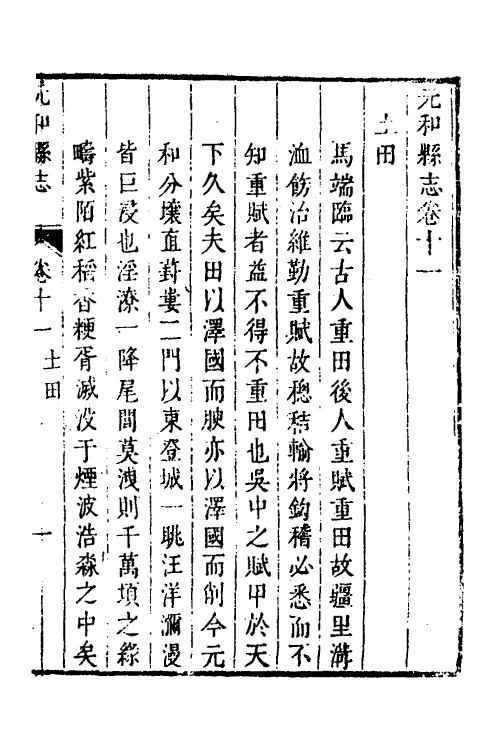 元和縣志卷十一
土田
馬端臨云古人重田後人重賦重田故疆里溝
洫飭治維勤重賦故穗秸輸將鈎稽必悉而不
知重賦者益不得不重田也吳中之賦甲於天
下久矣夫田以澤國而腴亦以澤國而削今元
和分壤直葑婁二門以東登城一眺汪洋瀰漫
皆巨浸也淫潦一降尾閭莫洩則千萬頃之綠
疇紫陌紅稻香粳胥滅没于煙波浩淼之中矣
元和縣志
卷十一
土田
一